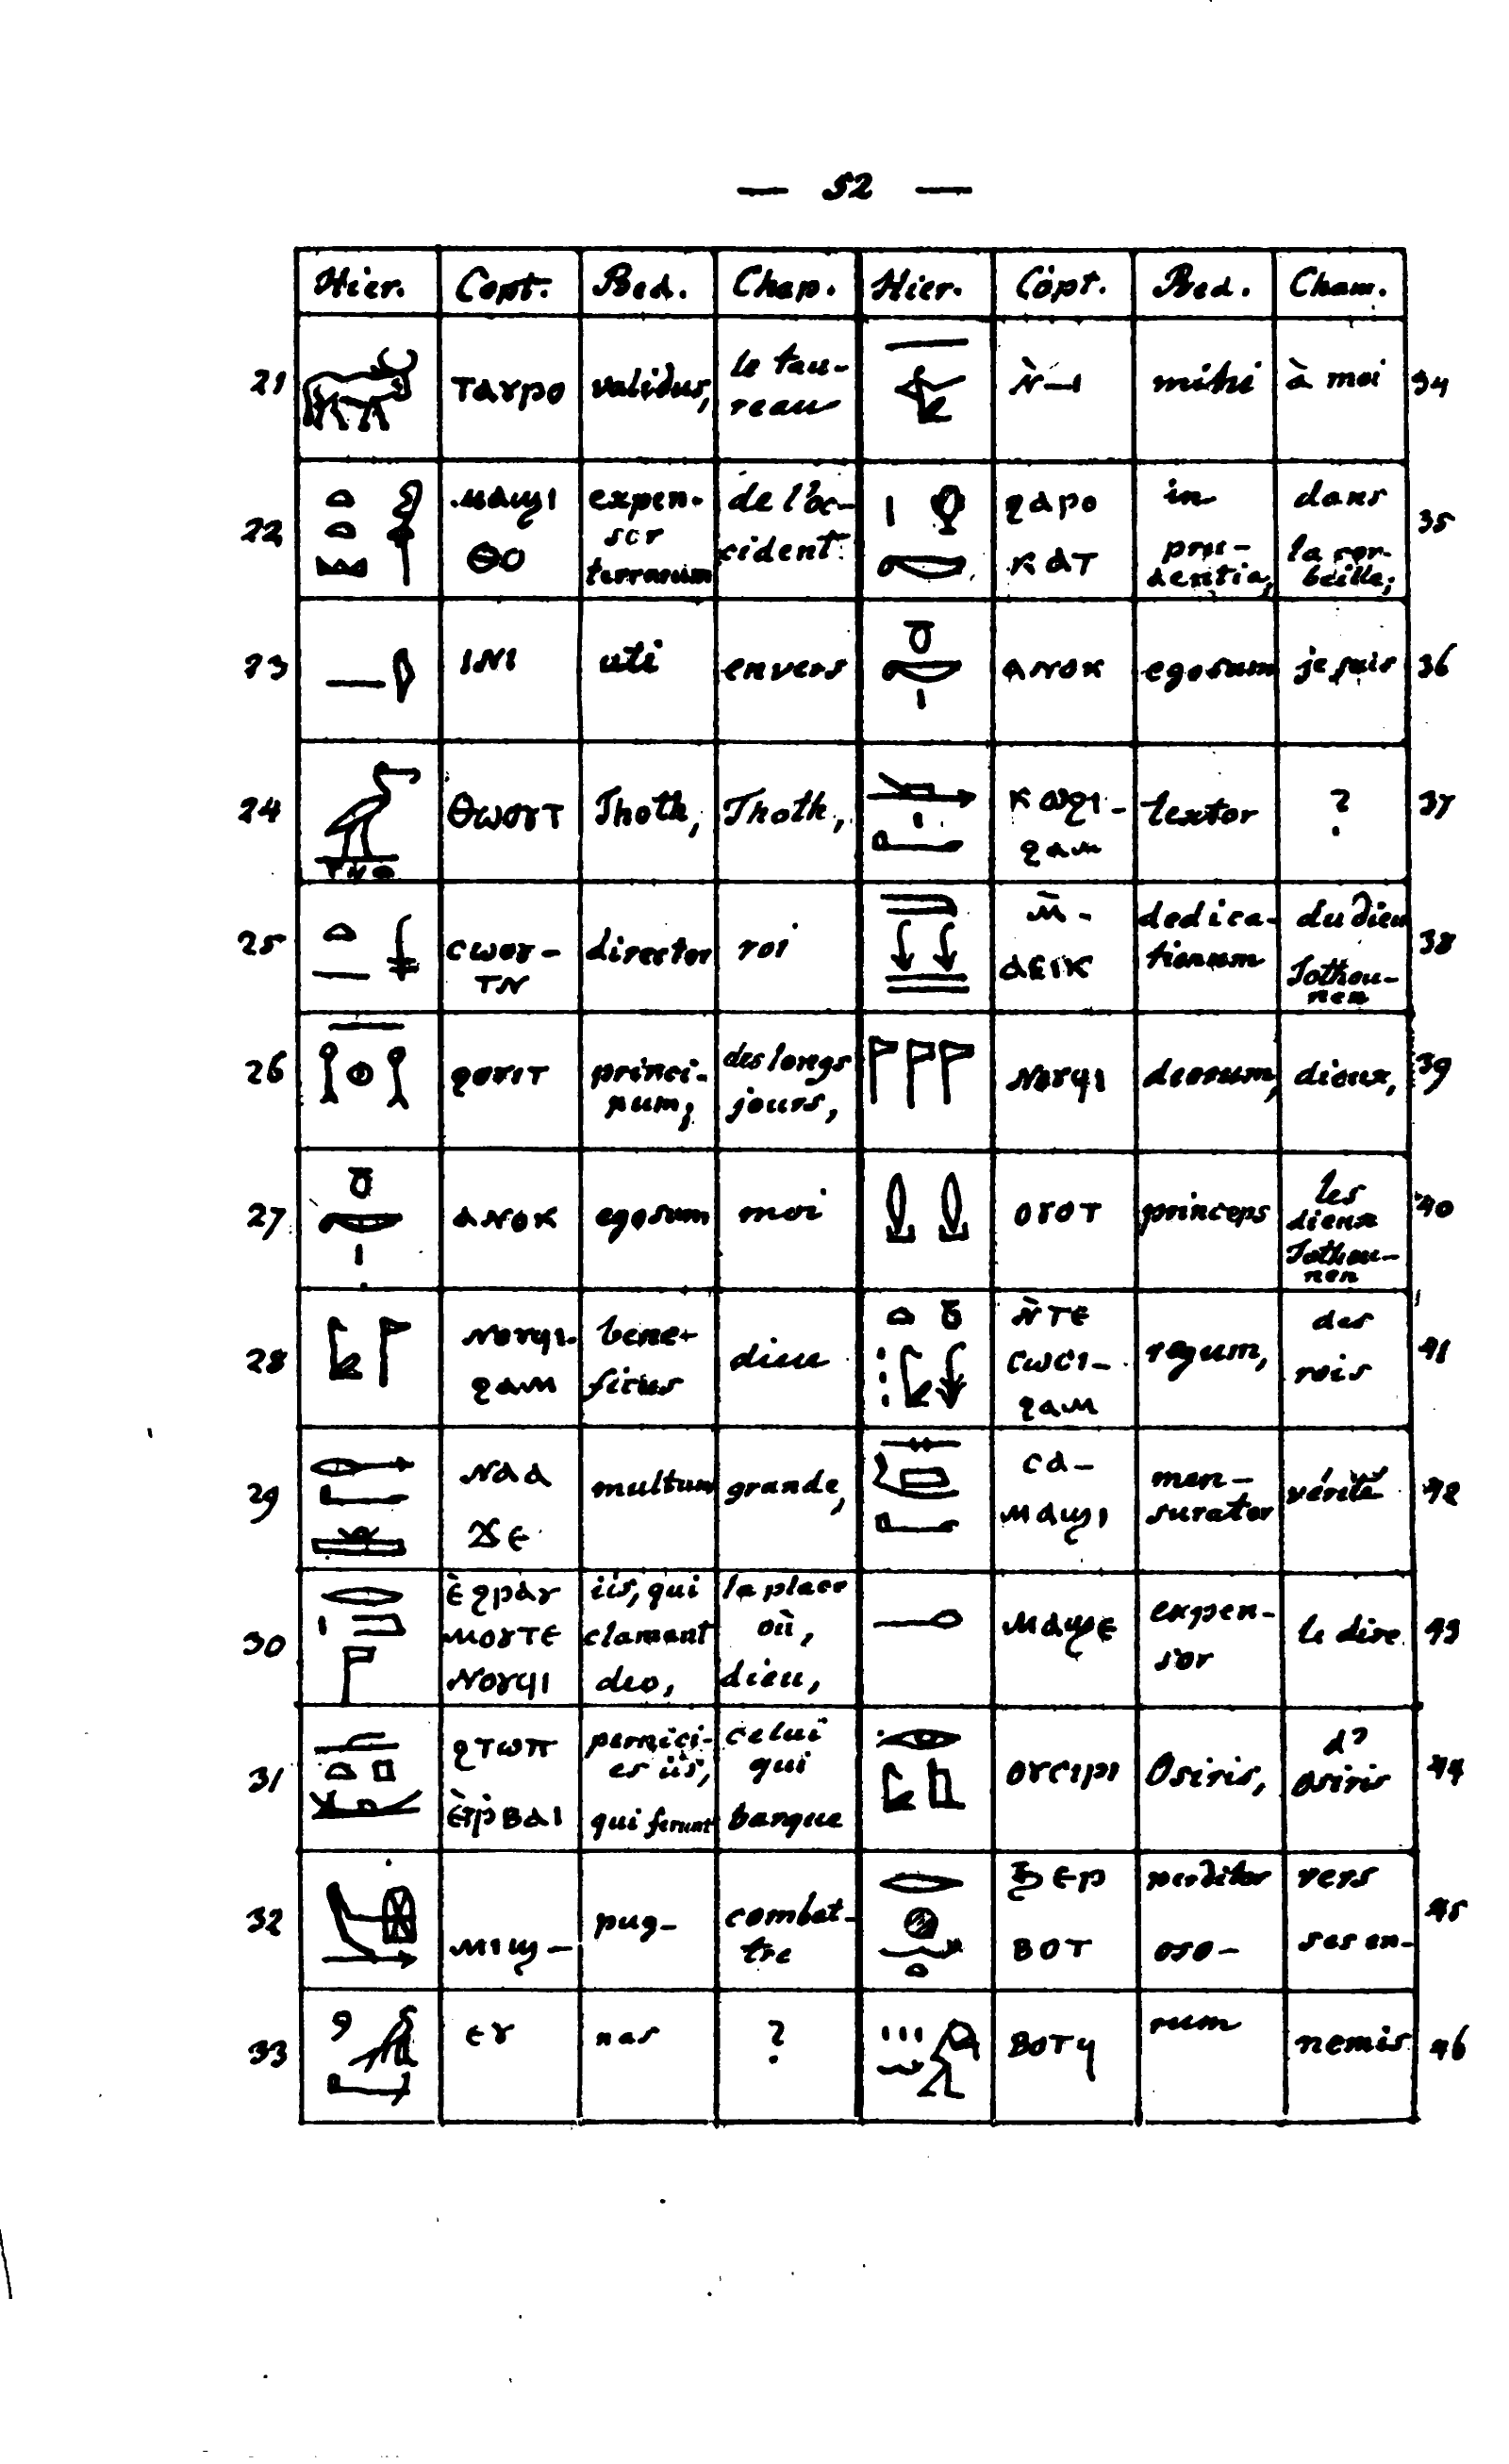 — 52 —
Hier. Copt. Bed. Chap. Hier. Copt. Bed. Cham.
21 ⲧⲁⲩⲣⲟ validus, le tau-
reau
ⲛ̀—ⲓ mihi à moi 34
22 ⲙⲁϣⲓ
ⲑⲟ
expen-
sor
terrarum
de l'oc-
cident.
ϩⲁⲣⲟ
ⲕⲁⲧ
in
pru-
dentia,
dans
la cor-
beille; 35
23 ⲓⲛⲓ uti envers
ⲁⲛⲟⲕ egosum je suis 36
24 ⲑⲱⲟⲩⲧ Thoth, Thoth,
ϩⲁⲙ
textor ? 37
25 ⲥⲱⲟⲩ-
ⲧⲛ
director roi
ⲙ̄-
ⲁⲉⲓⲕ
dedica-
tionum
du dieu
Tothou-
nen 38
26 ϩⲟⲩⲓⲧ princi-
pum,
des longs
jours,
ⲛⲟⲩϥⲓ deorum, dieux, 39
27 ⲁⲛⲟⲕ egosum moi
ⲟⲩⲟⲧ princeps les
dieux
Tothou-
nen 40
28 ⲛⲟⲩϥⲓ-
ϩⲁⲙ
bene-
ficus
dieu
ⲛ̀ⲧⲉ
ⲥⲱⲥⲓ-
ϩⲁⲙ
regum, des
rois 41
29 ⲛⲁⲁ
ϫⲉ
multum grande,
ⲥⲁ-
ⲙⲁϣⲓ
men-
surator
vérité 42
30 ⲉ̀ϩⲣⲁⲩ
ⲙⲟⲩⲧⲉ
ⲛⲟⲩϥⲓ
iis, qui
clamant
deo,
la place
où,
dieu,
ⲙⲁϣⲉ expen-
sor
le dire 43
31 ϩⲧⲱⲡ
ⲃⲁⲓ
pernici-
es iis,
qui ferunt
celui
qui
barque
ⲟⲩⲥⲓⲣⲓ Osiris, d'
osiris 44
32 ⲙⲓϣ- pug- combat-
tre
ϧⲉⲣ
ⲃⲟⲧ
perditor
oso-
vers
ses en- 45
33 ⲉⲩ nas ?
ⲃⲟⲧϥ rum nemis 46